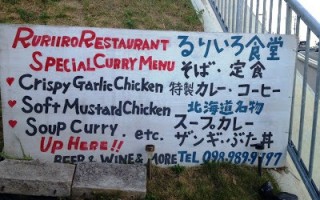 RURIIRO RESTAURANT るりいろ食堂
SPECIAL CURRY MENU そば・定食
♥ CRISPY GARLIC CHICKEN 特製カレー・コーヒー
♥ SOFT MUSTARD CHICKEN 北海道名物
♥ SOUP CURRY. etc. スープカレー
UP HERE!! ザンギ・ぶた丼
BEER & WINE & MORE TEL 098.989.9797